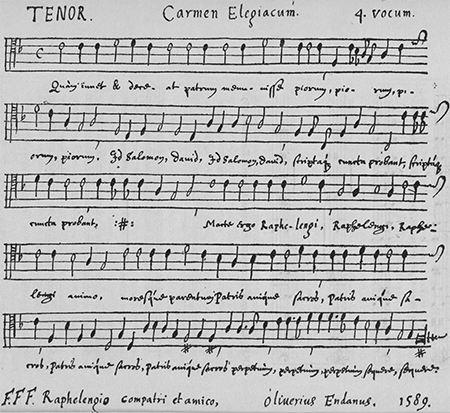 TENOR. Carmen Elegiacum. 4. vocum.
Quàm iuuet & dece- at patrum memi- nisse piorum, pio- rum, pi-
orum, piorum, Id Salomon, dauid, Id Salomon, dauid, scriptaq̃ cuncta probant, scriptaq̃
cuncta probant, :#: Marte ergo Raphe-lengi, Raphelengi, Raphe-
lengi animo, moresque parentum Patris auique sacros, patris auique sa-
cros, patris auique sacros, patris auique sacros perpetuim, perpetuim, perpetuim sequere, sequere.
F.F.F. Raphelengio compatri et amico, Oliuerius Endanus. 1589.